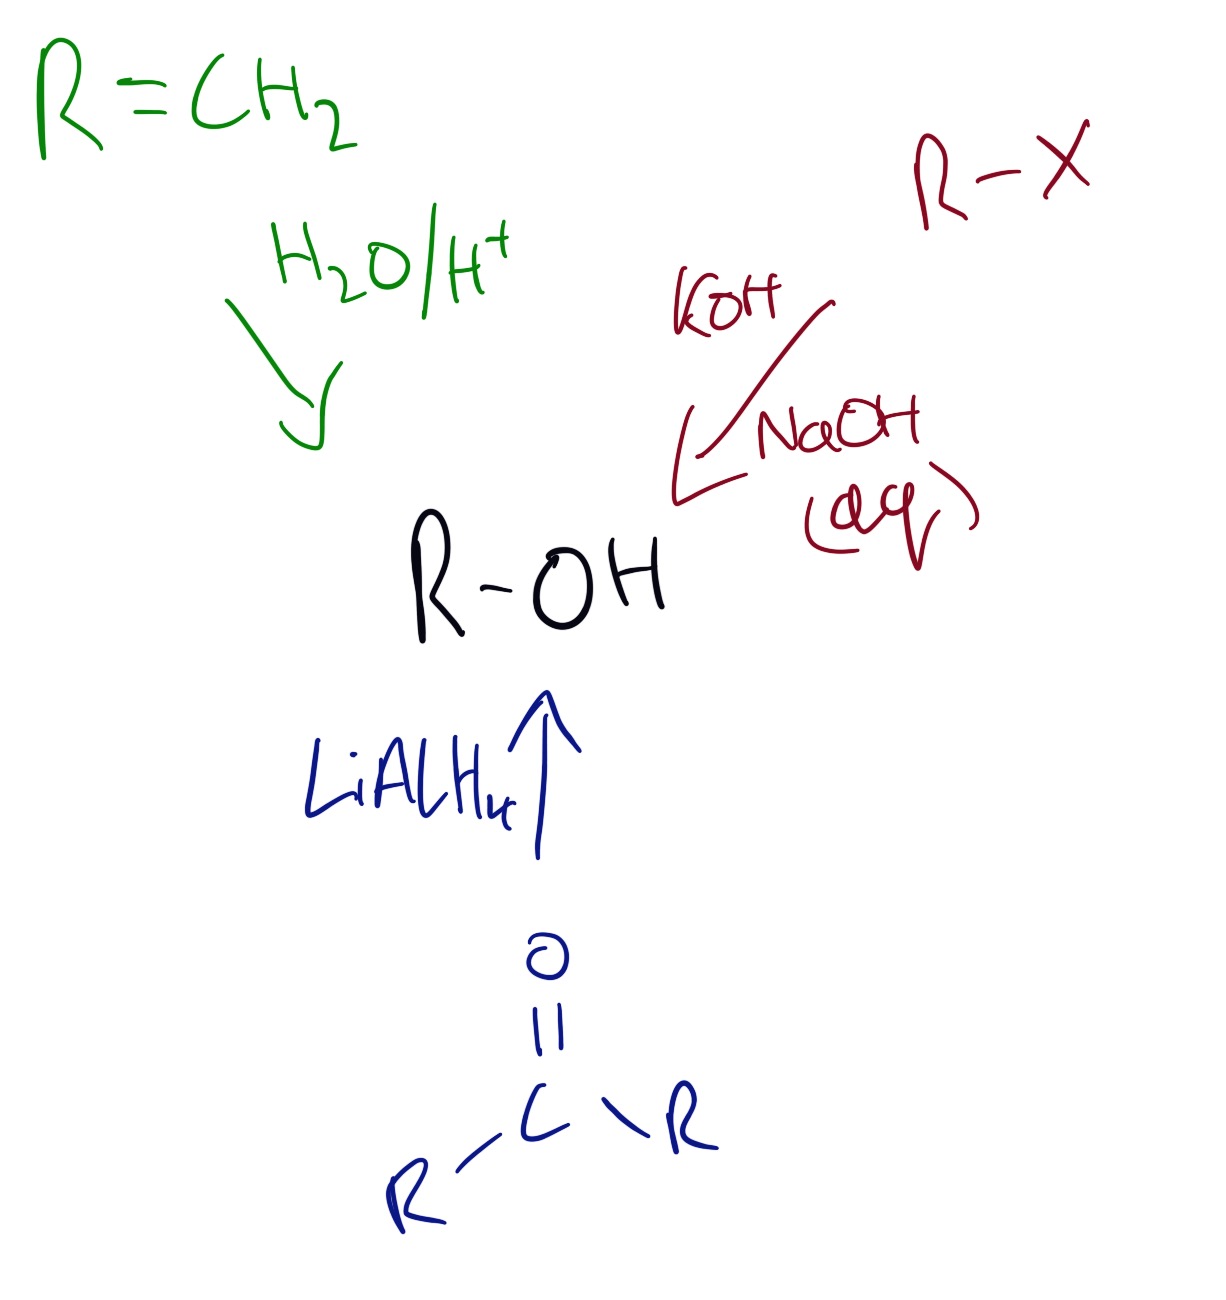 R=CH₂
R-X
H₂O/H⁺
KOH
NaOH
(aq)
R-OH
LiAlH₄
O
||
C
R
R